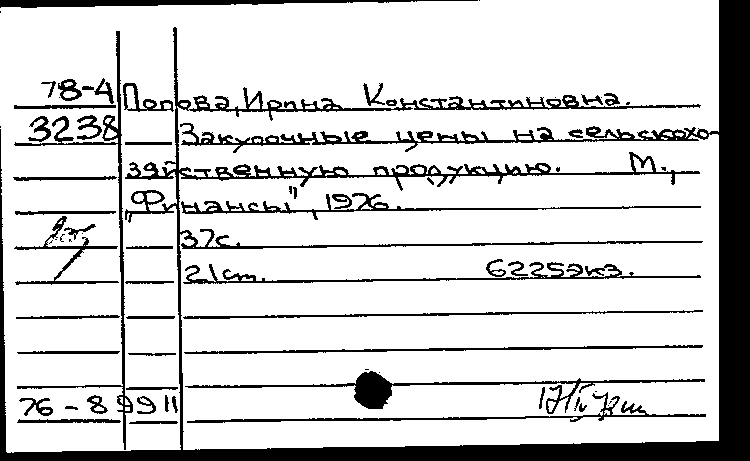 78-4 Попова, Ирина Константиновна.
3238 Закупочные цены на сельскохо-
зяйственную продукцию. М.,
"Финансы", 1976.
37с.
21см. 6225экз.
76-89911